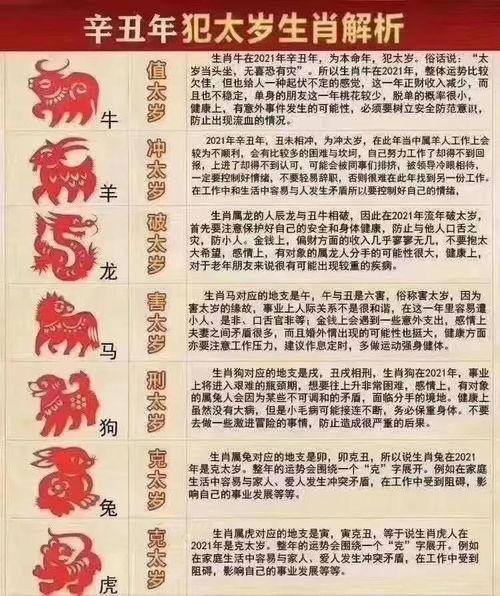 辛丑年犯太岁生肖解析
牛
值太岁
生肖牛在2021年辛丑年，为本命年，犯太岁。俗话说：“太
岁当头坐，无喜恐有灾”。所以生肖牛在2021年，整体运势比较
欠佳，但也给人一种起伏不定的感觉，这一年正财收入减少，而
且也不稳定，单身的朋友这一年桃花较少，脱单的概率很小，
健康上，有意外事件发生的可能性，必须要树立安全防范意识，
防止出现流血的情况。
羊
冲太岁
2021年辛丑年，丑未相冲，为冲太岁，在此年当中属羊人工作上会
较为不顺利，会有比较多的困难与坎坷，自己努力工作了却得不到回
报，上进了却得不到认可，可能会被同事们排挤，被领导冷眼相待，
一定要控制好情绪，不要轻易辞职，否则很难在此年找到另一份工作。
在工作中和生活中容易与人发生矛盾所以要控制好自己的情绪，
龙
破太岁
生肖属龙的人辰龙与丑牛相破，因此在2021年流年破太岁，
首先要注意保护好自己的安全和身体健康，防止与他人口舌之
灾，防小人。金钱上，偏财方面的收入几乎寥寥无几，不要抱太
大希望，感情上，有对象的属龙人分手的可能性很大，健康上，
对于老年朋友来说很有可能出现较重的疾病。
马
害太岁
生肖马对应的地支是午，午与丑是六害，俗称害太岁，因为
害太岁的缘故，事业上人际关系不是很和谐，在这一年里容易遭
小人、是非、口舌官非等；金钱上会遇到一些意外支出，感情上
夫妻之间矛盾很多，而且婚外情出现的可能性也挺大，健康方面
亦要注意工作压力，建议作息定时，多做运动强身健体。
狗
刑太岁
生肖狗对应的地支是戌，丑戌相刑，生肖狗在2021年，事业
上将进入艰难的瓶颈期，想要往上升非常困难，感情上，有对象
的属兔人会因为某些不可调和的矛盾，面临分手的境地。健康上
虽然没有大病，但是小毛病可能接连不断，务必保重身体。不要
去做一些激进冒险的事情，防止造成很严重的后果。
兔
克太岁
生肖属兔对应的地支是卯，卯克丑，所以说生肖兔在2021
年是克太岁。整年的运势会围绕一个“克”字展开。例如在家庭
生活中容易与家人、爱人发生冲突矛盾，在工作中受到阻碍，影
响自己的事业发展等等。
虎
克太岁
生肖属虎对应的地支是寅，寅克丑，等于说生肖虎人在
2021年是克太岁。整年的运势会围绕一个“克”字展开。例如
在家庭生活中容易与家人、爱人发生冲突矛盾，在工作中受到
阻碍，影响自己的事业发展等等。